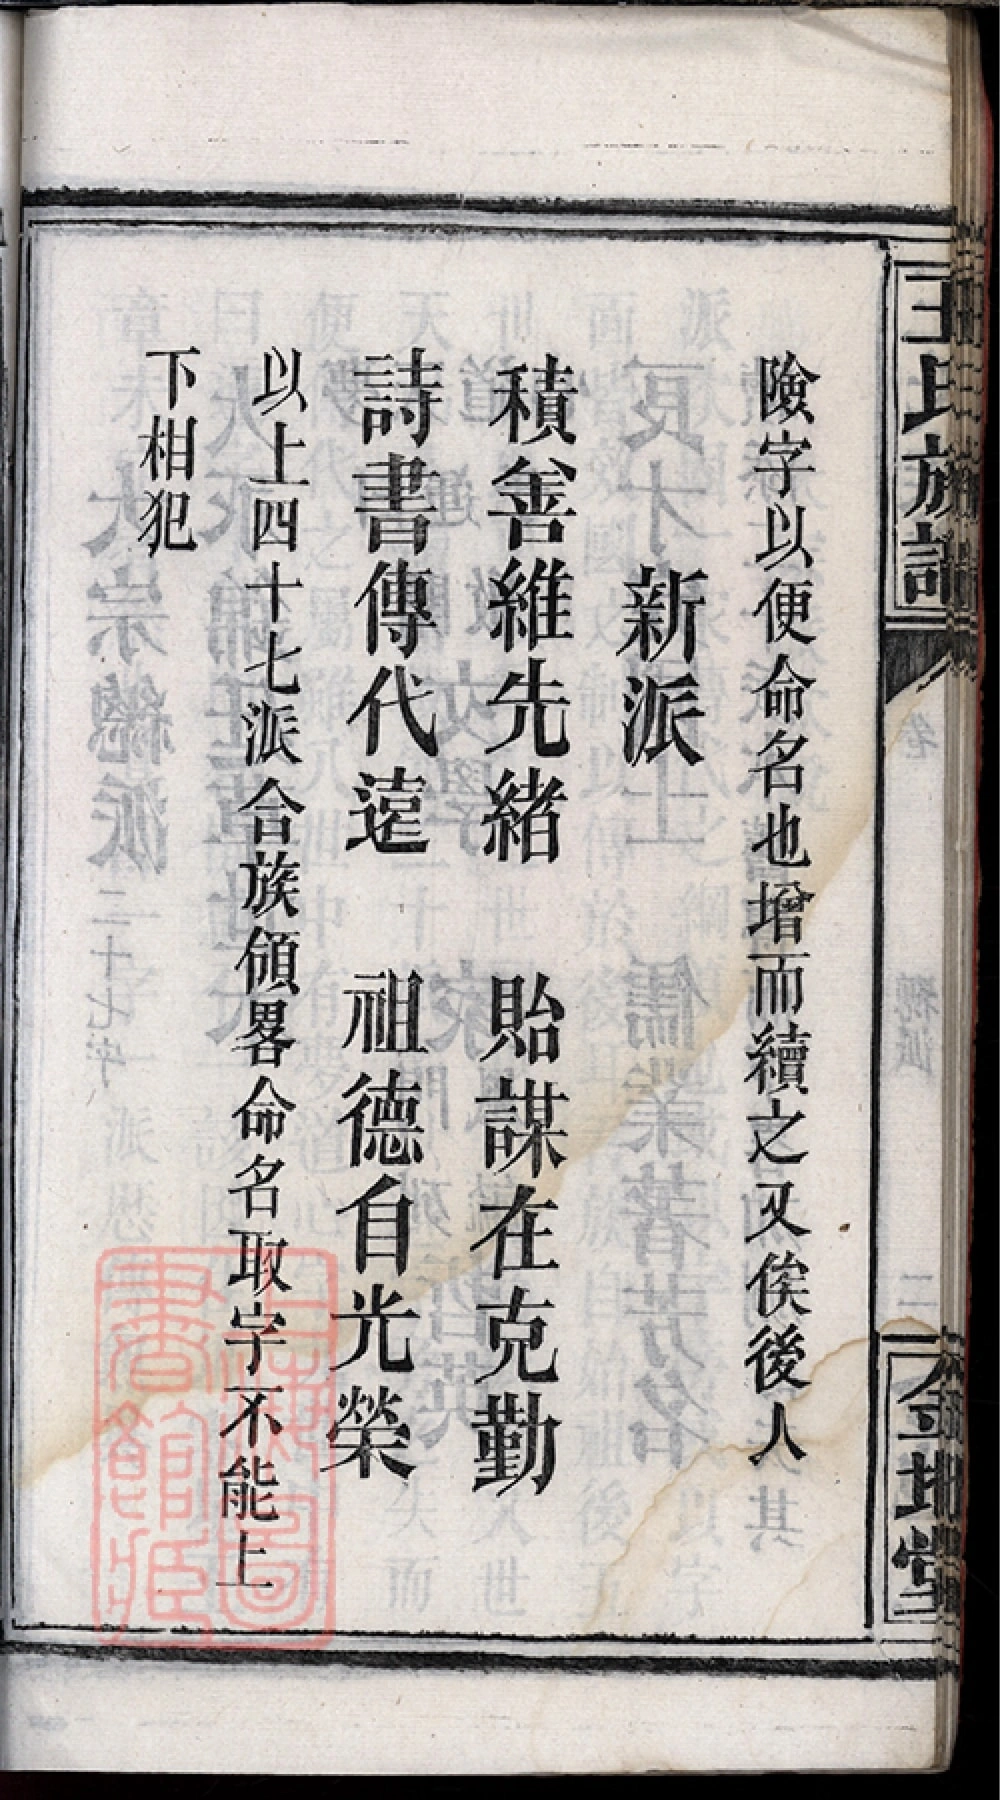 王氏族譜
金地堂
險字以便命名也增而續之又俟後人
新派
積善維先緒　貽謀在克勤
詩書傳代遠　祖德自光榮
以上四十七派合族領畧命名取字不能上
下相犯
上海圖書館藏